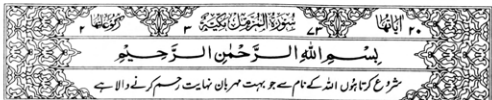 اٰیَاتُهَا ٢٠ ٧٣ سُوْرَةُ الْمُزَّمِّلِ مَكِّيَّةٌ ٣ رُكُوْعَاتُهَا ٢
بِسْمِ اللّٰهِ الرَّحْمٰنِ الرَّحِيْمِ
شروع کرتا ہوں اللہ کے نام سے جو بہت مہربان نہایت رحم کرنے والا ہے